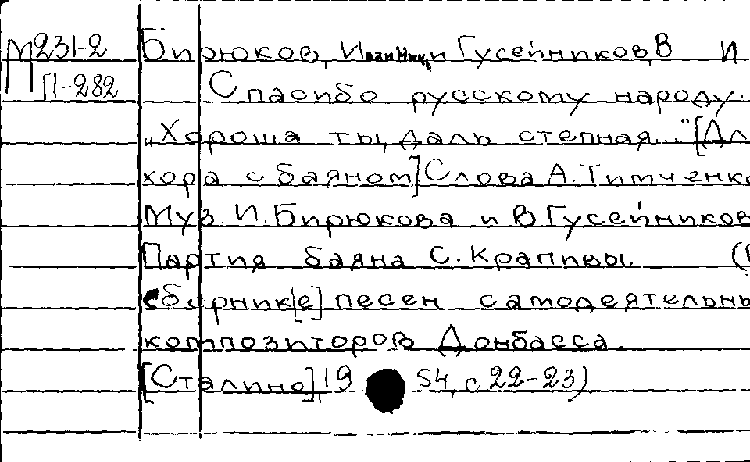 М231-2 Бирюков, Иван Ник. и Гусейников, В И
П-282 Спасибо русскому народу.
„Хороша ты, даль степная..." [Дл
хора с баяном] Слова А. Тимченко
Муз И. Бирюкова и В Гусейников
Партия баяна С. Крапивы. (В
сборник[е] песен самодеятельны
композиторов Донбасса.
[Сталино], 1954, с 22-23)